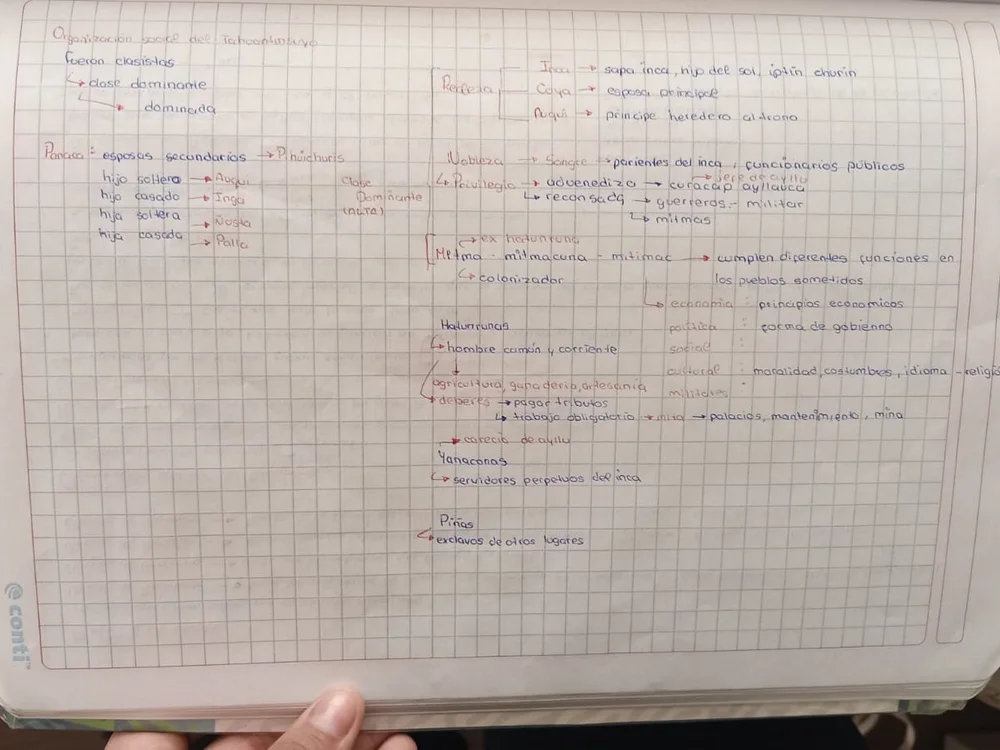 Organización social del Tahuantinsuyo
fueron clasistas
↳ clase dominante
↳ dominada
Panaca : esposas secundarias → Pihuichuris
hijo soltero → Auqui
hijo casado → Inga
hija soltera → Ñusta
hija casada → Palla
Clase
Dominante
(ALTA)
Realeza
Inca → sapa inca, hijo del sol, iptin churin
Coya → esposa principal
Auqui → príncipe heredero al trono
Nobleza → Sangre → parientes del inca, funcionarios públicos
→ jefe de ayllu
↳ Privilegio → advenedizo → curacap ayllauca
↳ → guerreros - militar
↳ mitmas
→ ex hatunruna
Mitma - mitmacuna - mitimac → cumplen diferentes funciones en
↳ colonizador los pueblos sometidos
↳ economia : principios economicos
politica : forma de gobierno
social :
cultural : moralidad, costumbres, idioma - religió
militares :
Hatunrunas
↳ hombre común y corriente
agricultura, ganaderia, artesania
deberes → pagar tributos
↳ trabajo obligatorio → mita → palacios, mantenimiento, mina
→ careció de ayllu
Yanaconas
↳ servidores perpetuos del inca
Piñas
↳ exclavos de otros lugares
conti